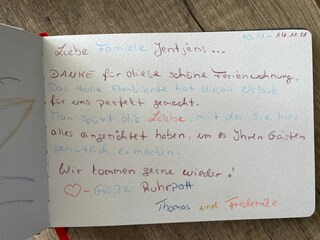 10.11 - 14.11.21
Liebe Familie Jentjens...
DANKE für diese schöne Ferienwohnung.
Das tolle Ambiente hat diesen Urlaub
für uns perfekt gemacht.
Man spürt die Liebe, mit der Sie hier
alles eingerichtet haben, um es Ihren Gästen
gemütlich zu machen.
Wir kommen gerne wieder!
Grüße Ruhrpott
Thomas und Friederike